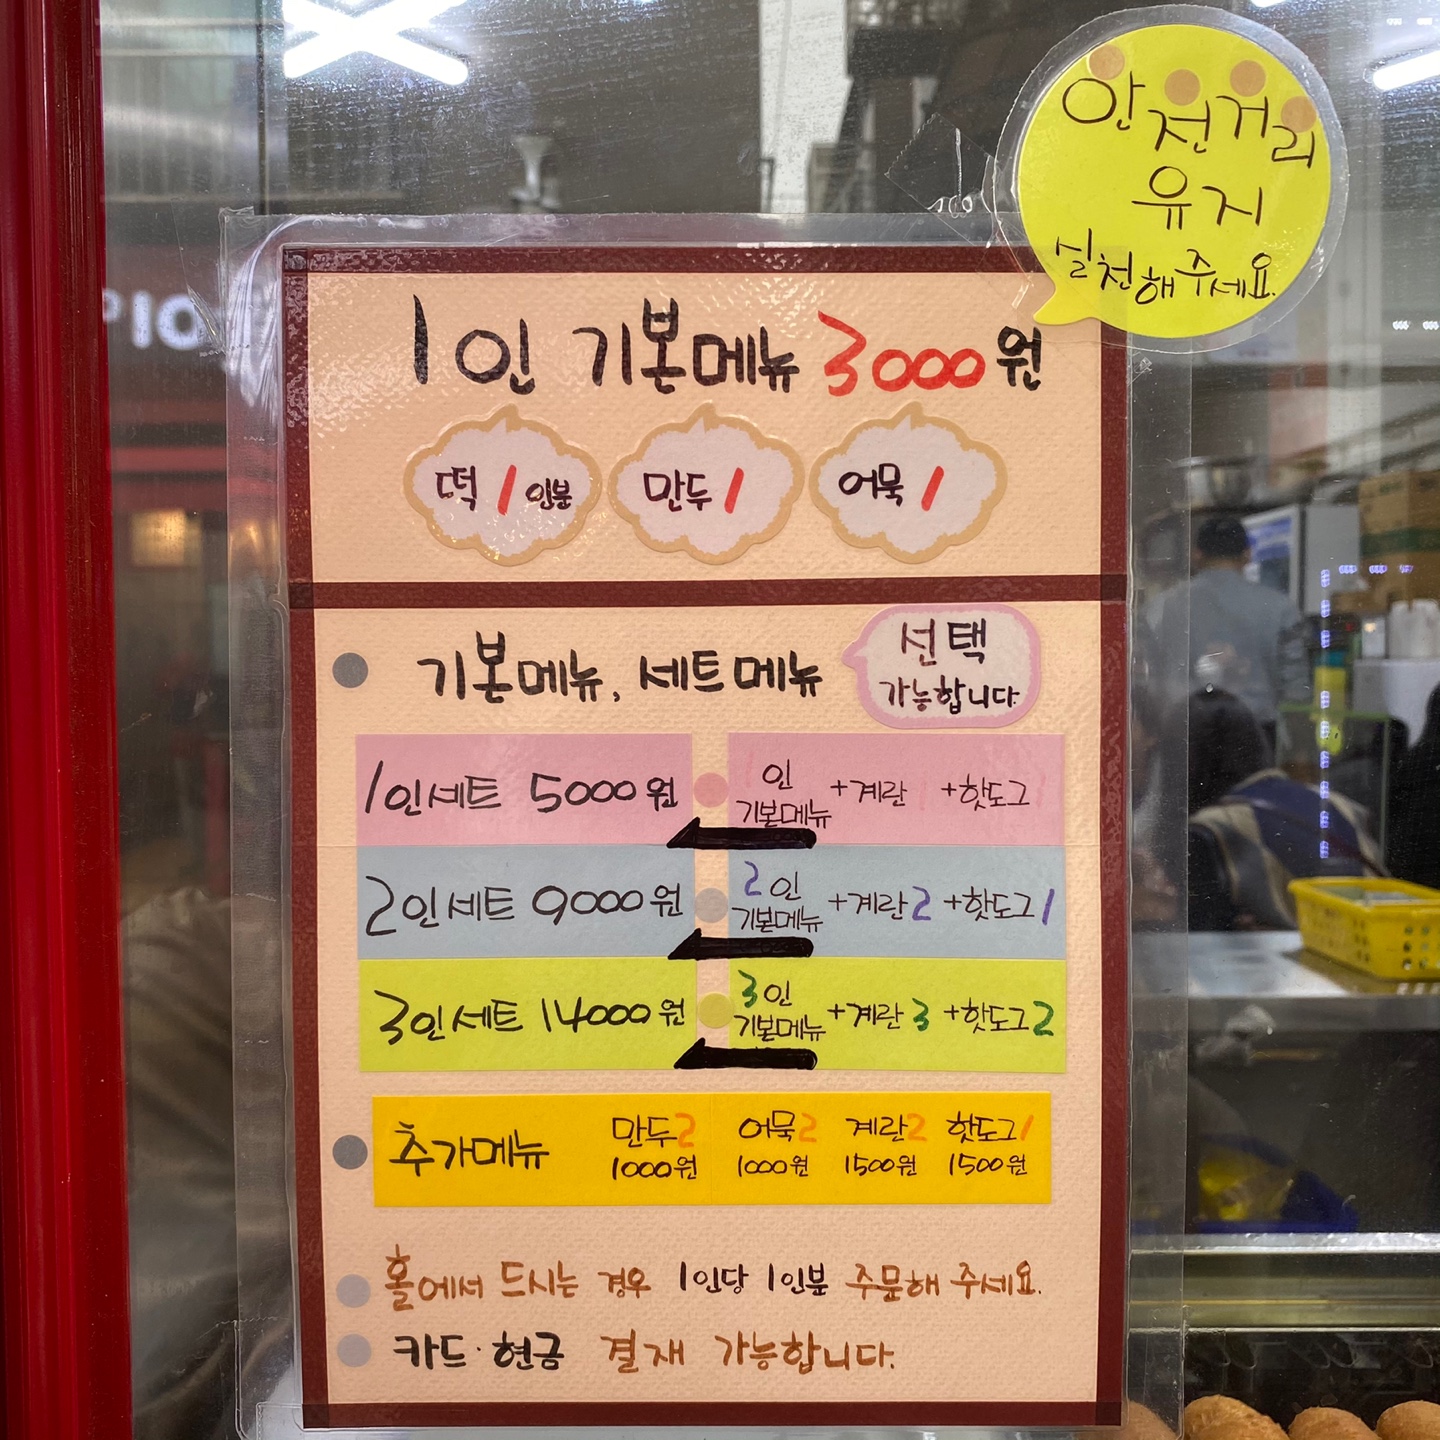 안전거리
유지
실천해주세요.
1인 기본메뉴 3000원
떡 1인분
만두 1
어묵 1
기본메뉴, 세트메뉴
선택
가능합니다
1인세트 5000원
1인 기본메뉴 +계란 1 +핫도그 1
2인세트 9000원
2인 기본메뉴 +계란 2 +핫도그 1
3인세트 14000원
3인 기본메뉴 +계란 3 +핫도그 2
추가메뉴
만두2 1000원
어묵2 1000원
계란2 1500원
핫도그1 1500원
홀에서 드시는 경우 1인당 1인분 주문해 주세요.
카드·현금 결재 가능합니다.